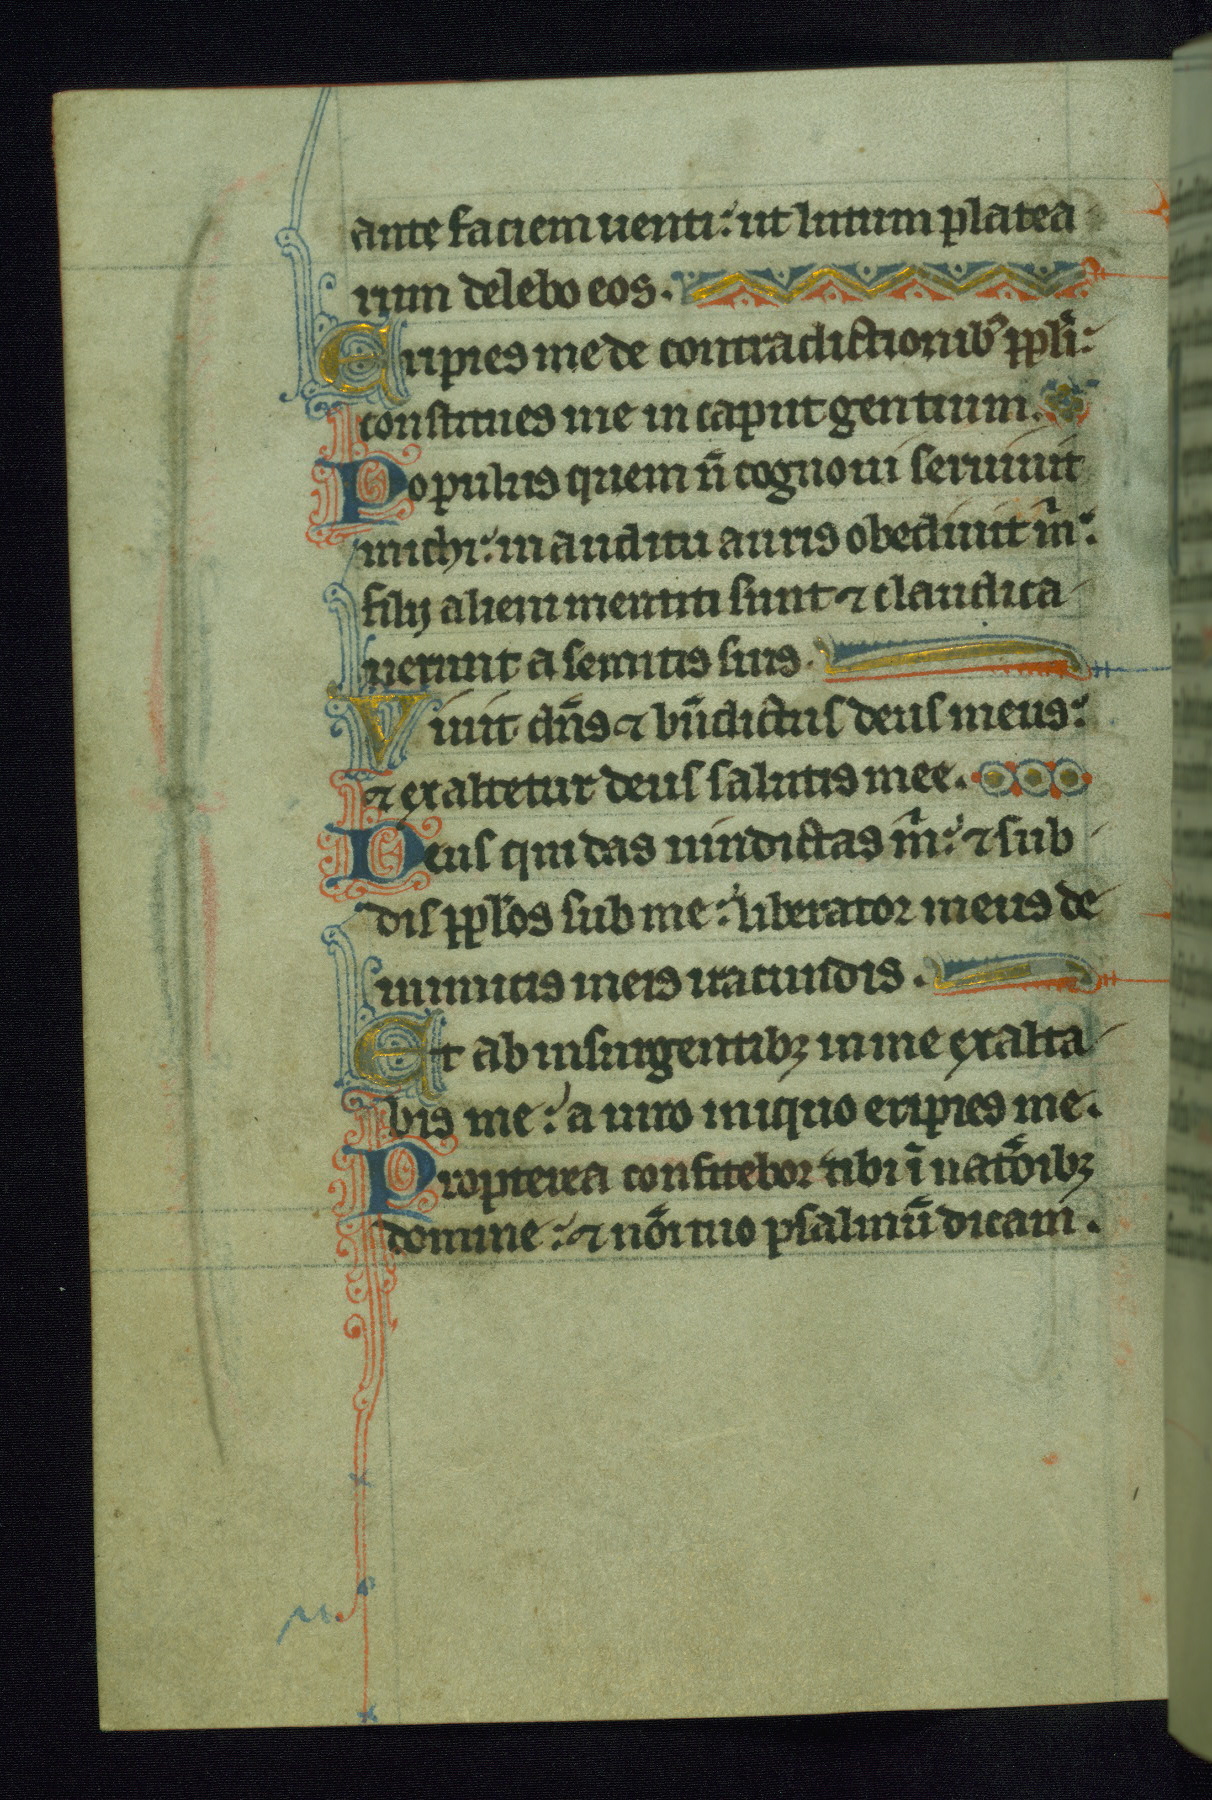 ante faciem uenti: ut lutum platea
rum delebo eos.
Eripies me de contradictionib᾽ ppl̓i:
constitues me in caput gentium.
Populus quem n̄ cognoui seruiuit
michi: in auditu auris obediuit m̓:
filij alieni mentiti sunt ⁊ claudica
uerunt a semitis suis.
Viuit dn̄s ⁊ bn̄dictus deus meus:
⁊ exaltetur deus salutis mee.
Deus qui das uindictas m̓: ⁊ sub
dis ppl̓os sub me: liberator meus de
inimicis meis iracundis.
Et ab insurgentibꝫ in me exalta
bis me: a uiro iniquo eripies me.
Propterea confitebor tibi ī nat̓oibꝫ
domine: ⁊ nōi tuo psalmū dicam.